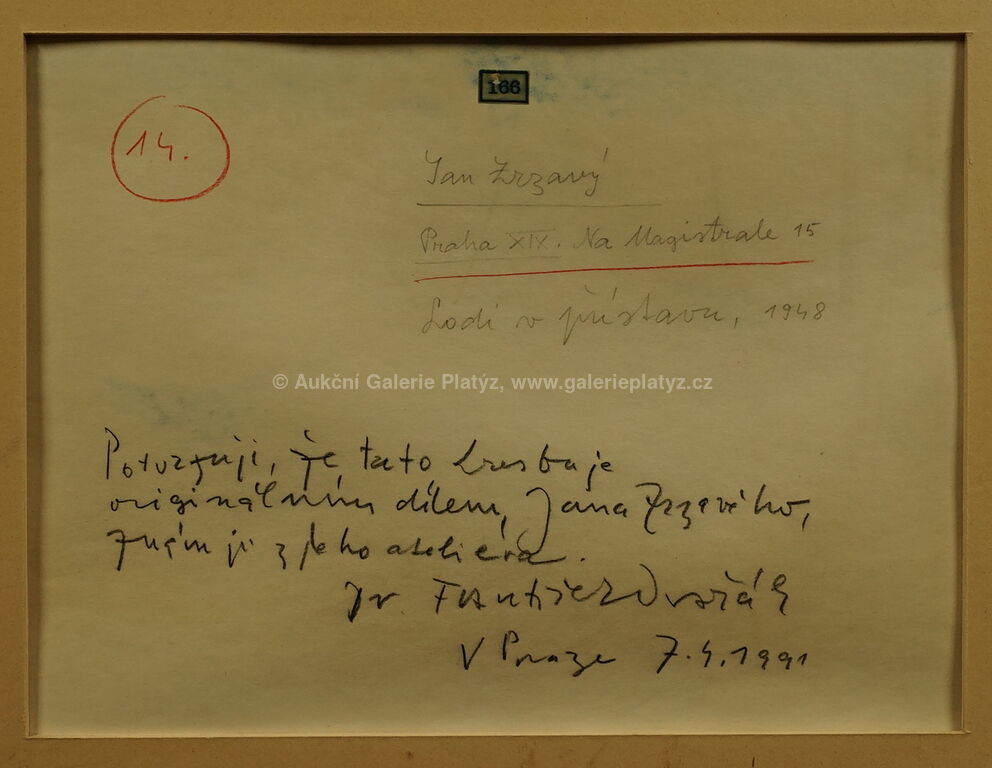 166
14.
Jan Zrzavý
Praha XIX. Na Magistrale 15
Lodi v přístavu, 1948
© Aukční Galerie Platýz, www.galerieplatyz.cz
Potvrzuji, že tato kresba je
originálním dílem, Jana Zrzavého,
znám ji z jeho ateliéra.
Dr. František Dvořák
V Praze 7.4.1991